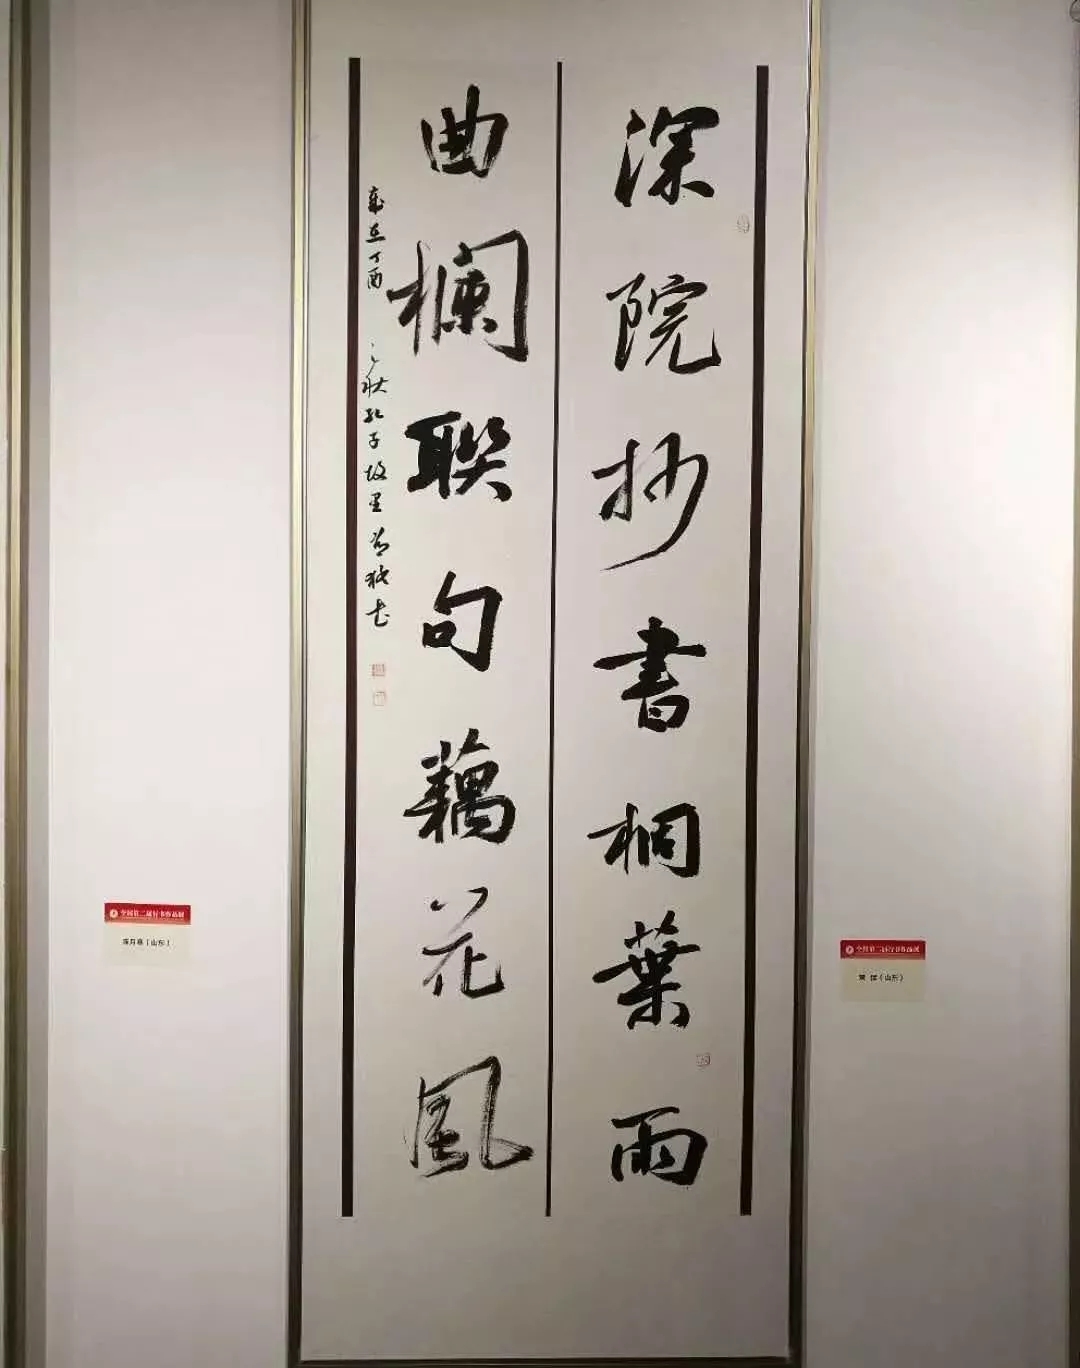 深院抄書桐葉雨
曲欄聯句藕花風
歲在丁酉之秋孔子故里
全国第二届行书作品展
（山东）
全国第二届行书作品展
（山东）